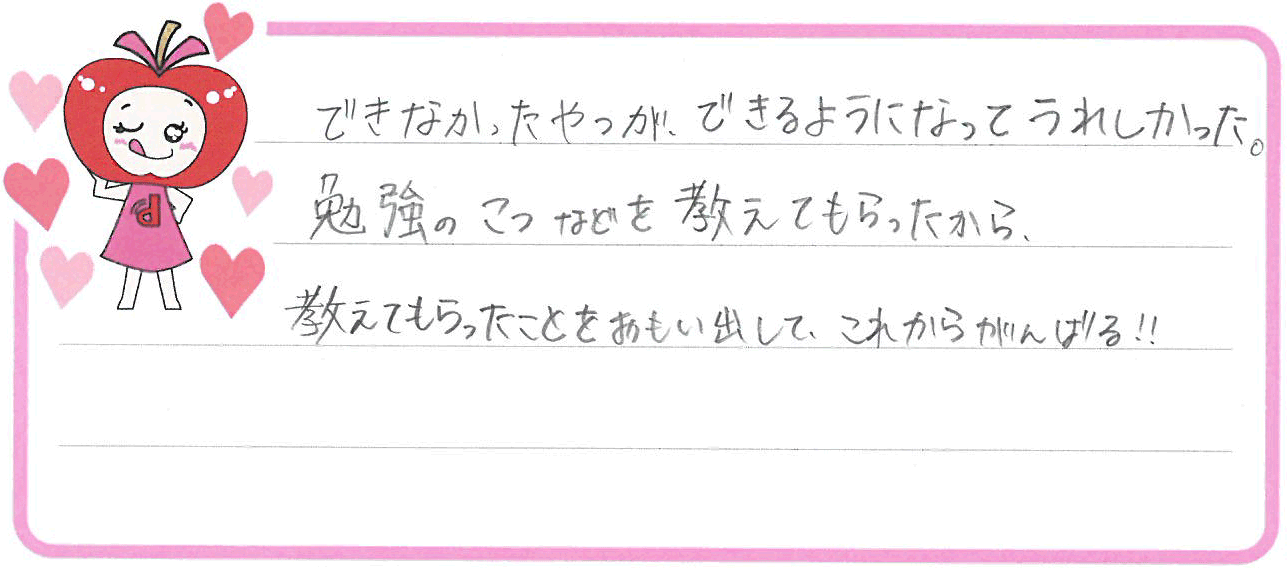 できなかったやつが、できるようになってうれしかった。
勉強のこつなどを教えてもらったから、
教えてもらったことをおもい出して、これからがんばる!!